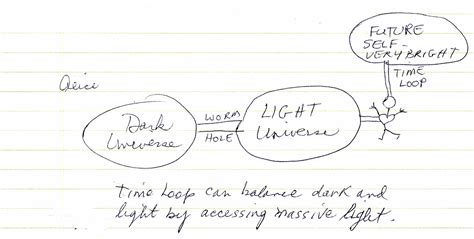 FUTURE
SELF-
VERY BRIGHT
TIME
LOOP
Alice
Dark
Universe
WORM
HOLE
LIGHT
Universe
Time Loop can balance dark and
light by accessing massive light.